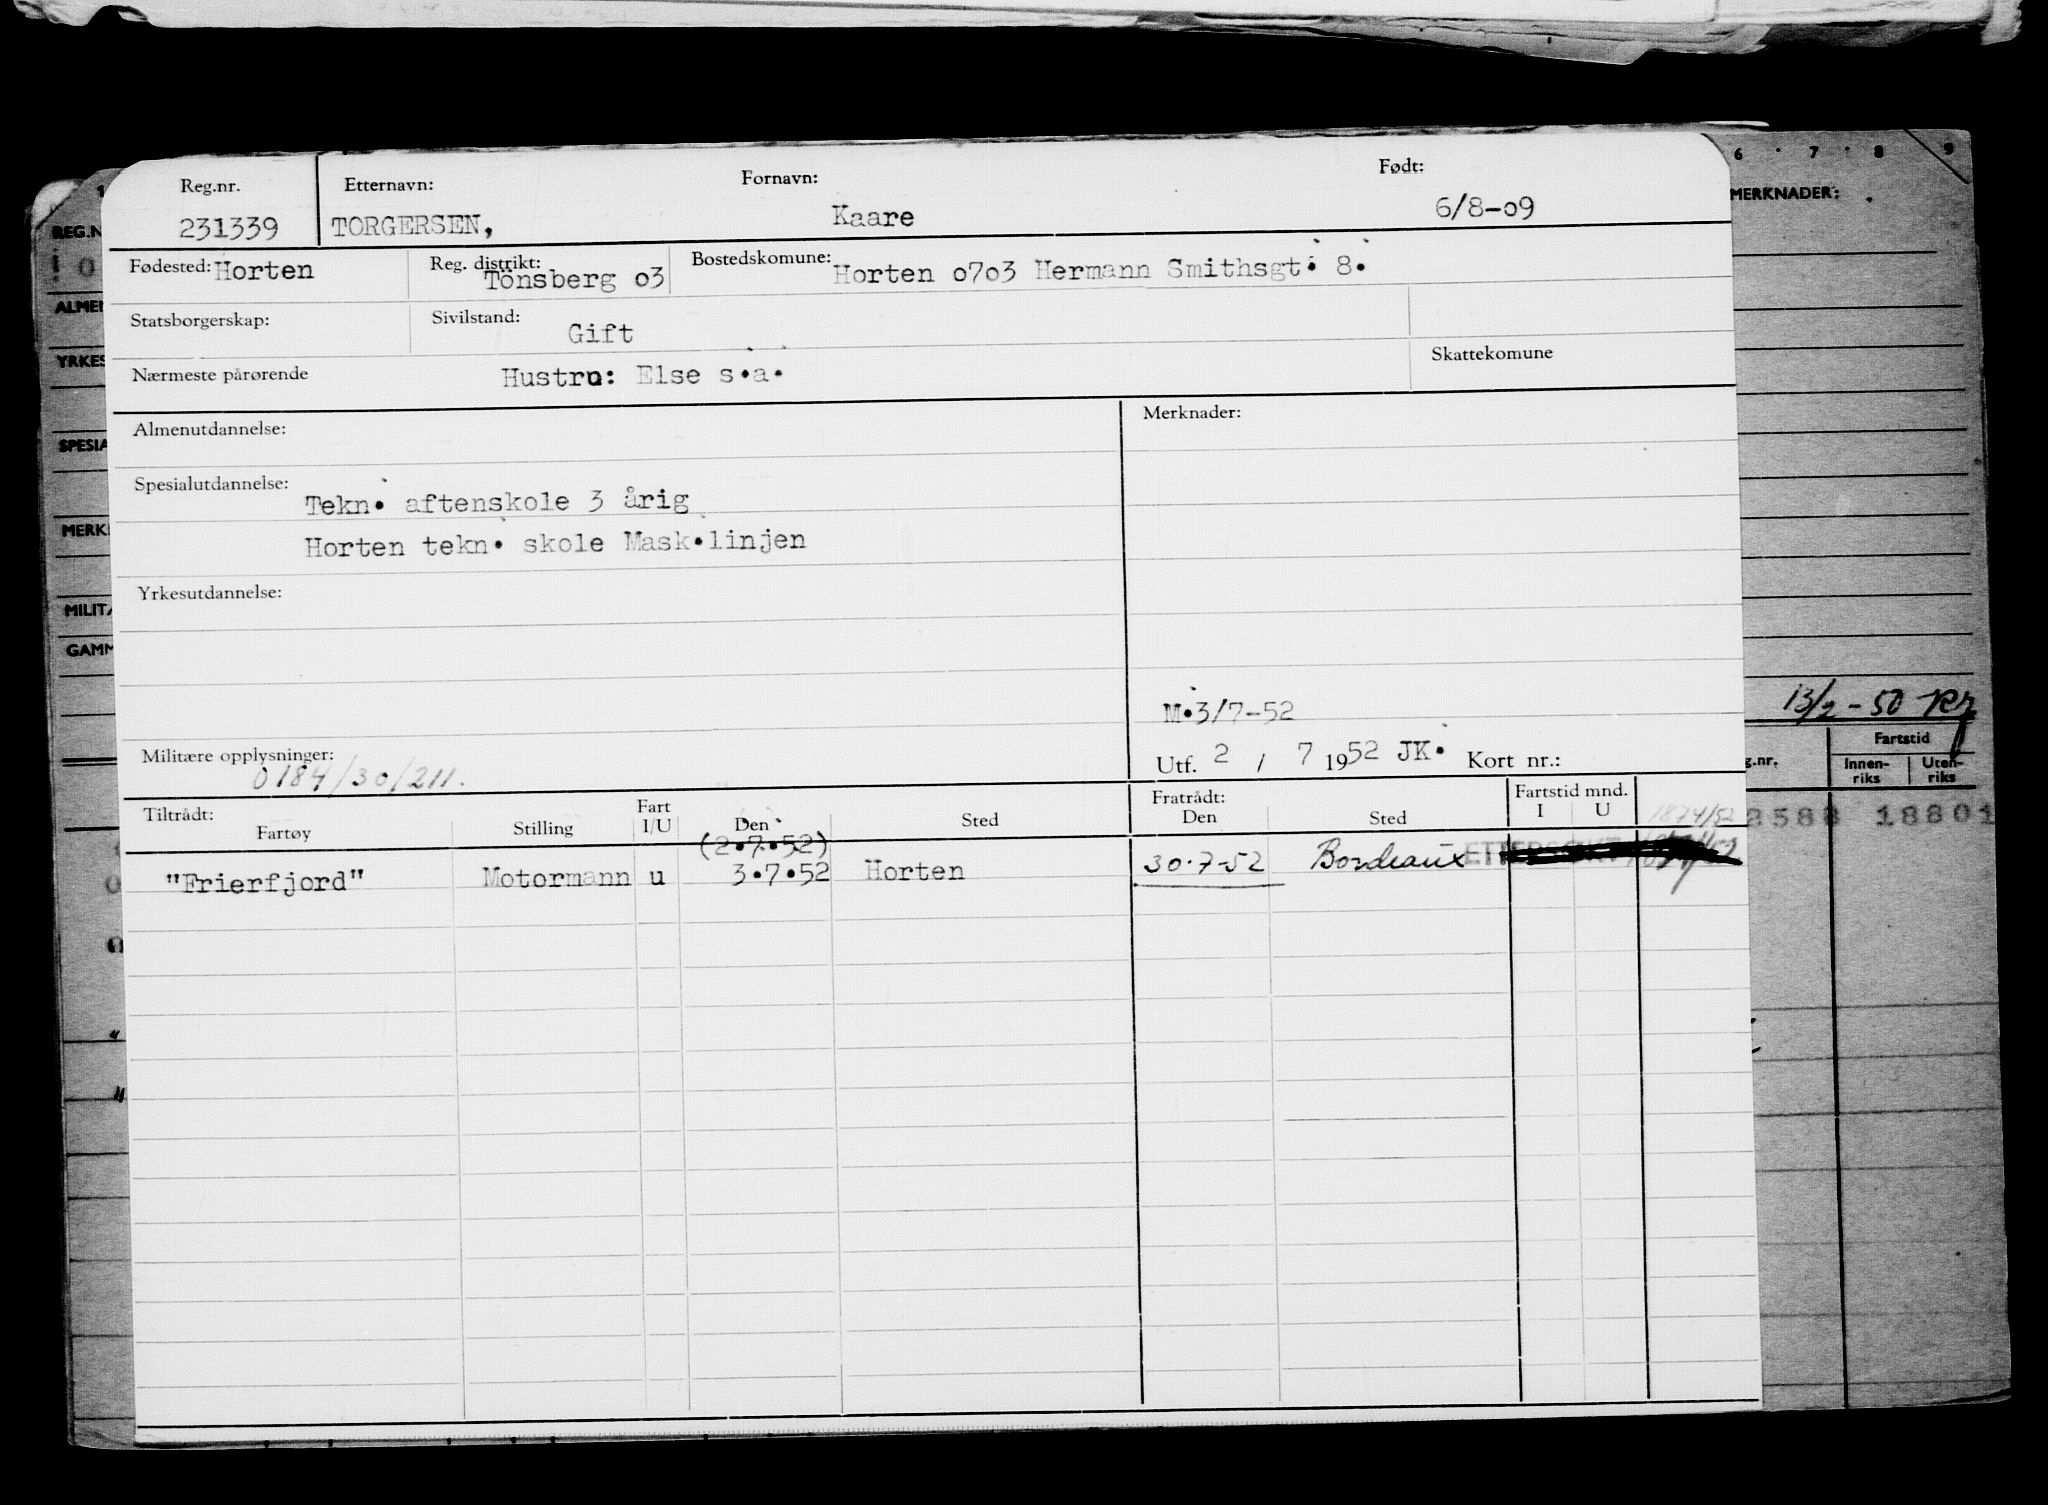 Reg.nr. Etternavn: Fornavn: Født:
231339 TORGERSEN, Kaare 6/8-o9
Fødested: Horten Reg. distrikt: Tönsberg o3 Bostedskomune: Horten o7o3 Hermann Smithsgt. 8.
Statsborgerskap: Sivilstand: Gift
Nærmeste pårørende Hustru: Else s.a. Skattekomune
Almenutdannelse: Merknader:
Spesialutdannelse: Tekn. aftenskole 3 årig
Horten tekn. skole Mask.linjen
Yrkesutdannelse:
M.3/7-52
Militære opplysninger: Utf. 2 / 7 1952 JK. Kort nr.:
0184/30/211.
Tiltrådt: Fart Fratrådt: Fartstid mnd.
Fartøy Stilling I/U Den Sted Den Sted I U
(2.7.52) 1874/52
"Frierfjord" Motormann u 3.7.52 Horten 30.7-52 Bordeaux
6 7 8 9
MERKNADER:
13/2-50
Fartstid
g.nr. Innen-riks Uten-riks
8588 18801
1
REG.N
0
ALMEN
YRKES
SPESIA
MERK
MILITA
GAMM